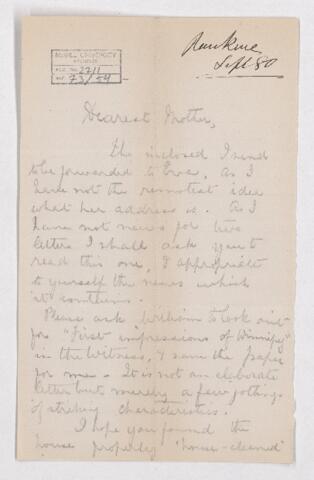 McGILL UNIVERSITY
ARCHIVES
ACC. NO. 2211
REF. 73/54
Sept 80
Dearest Mother,
The inclosed I send
to be forwarded to Eva, as I
have not the remotest idea
what her address is. As I
have not news for two
letters I shall ask you to
read this one, & appropriate
to yourself the news which
it contains.
Please ask William to look out
for "First impressions of Winnipeg"
in the Witness, & save the paper
for me. It is not an elaborate
letter but merely a few jottings
of striking characteristics.
I hope you found the
house properly "house-cleaned"